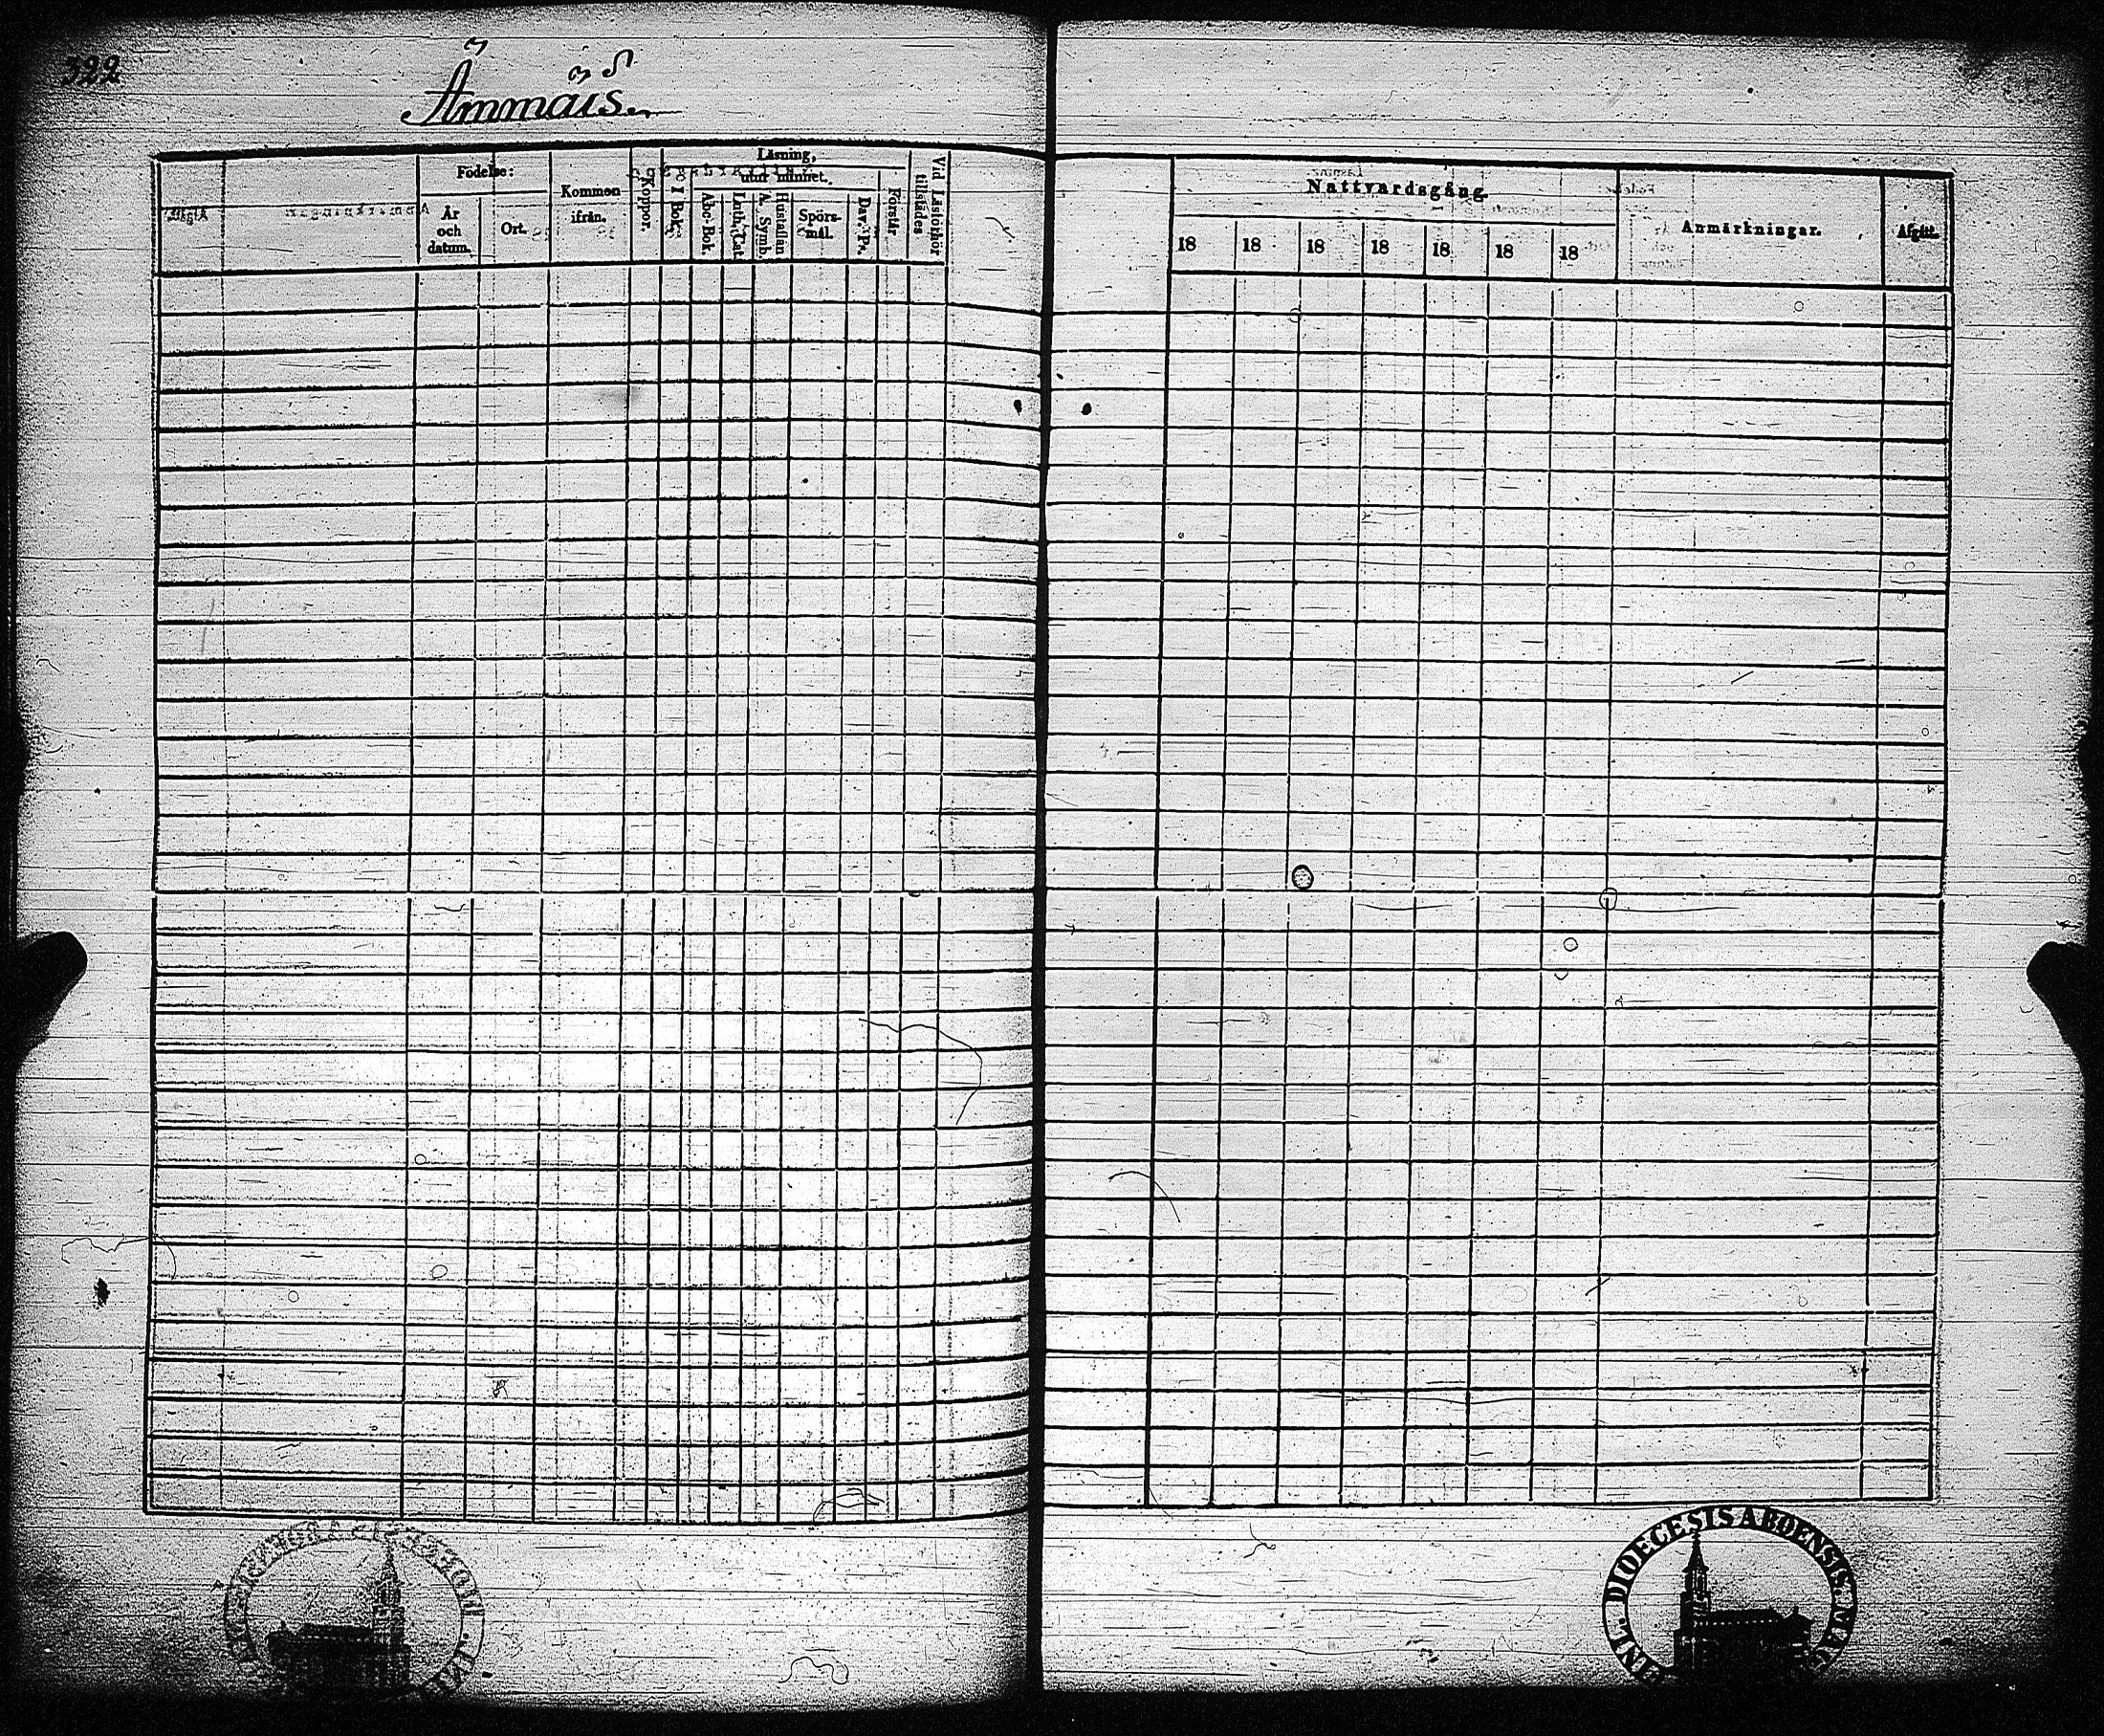 322
Ämmäis.
Födelse:
År och datum.
Ort.
Kommen ifrån.
Koppor.
Läsning,
I Bok.
utur minnet.
Abc-Bok.
Luth. Cat.
A. Symb.
Hustaflan
Spörsmål.
Dav. Ps.
Förstår
Vid Läsförhör tillstädes
Nattvardsgång.
18 18 18 18 18 18 18
Anmärkningar.
Afgått.
DIOECESIS ABOENSIS.